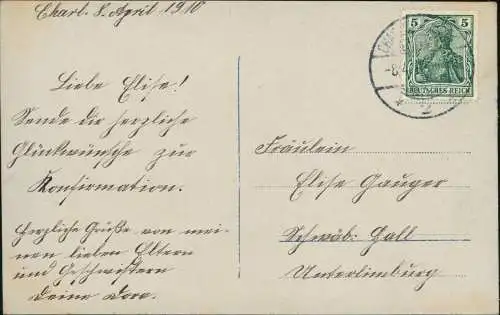 Charl. 8. April 1910
Liebe Elise!
Sende dir herzliche
Glückwünsche zur
Konfirmation.
Herzliche Grüße von mei-
nen lieben Eltern
und Geschwistern
Deine Dore.
5 5
DEUTSCHES REICH
-8.4
* 2
Fräulein
Elise Gauger
Schwäb. Hall
Unterlimburg